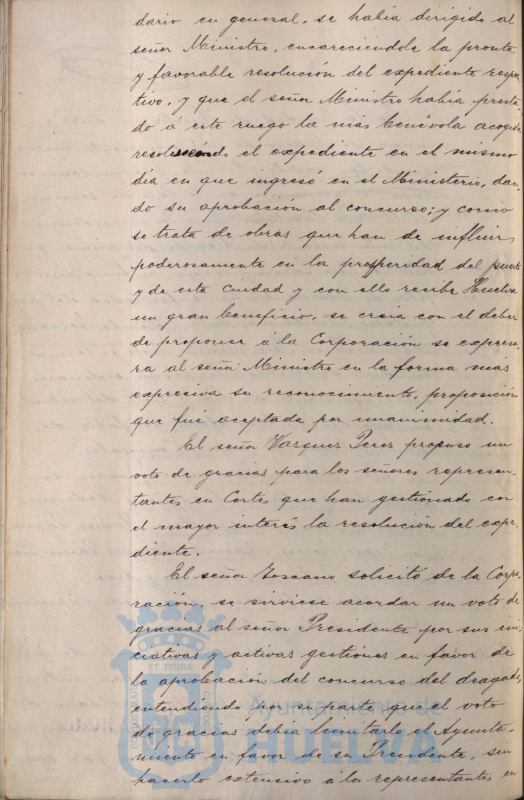 dario en general, se habia dirigido al
señor Ministro, encareciéndole la pronta
y favorable resolución del expediente respec
tivo, y que el señor Ministro habia presta
do á este ruego la más benévola acogida
resolviendo el expediente en el mismo
dia en que ingresó en el Ministerio, dan
do su aprobación al concurso; y como
se trata de obras que han de influir
poderosamente en la prosperidad del puerto
y de esta Ciudad y con ello recibe Huelva
un gran beneficio, se creia con el deber
de proponer á la Corporación se expresa-
ra al señor Ministro en la forma más
expresiva su reconocimiento, proposición
que fué aceptada por unanimidad.
El señor Vazquez Perez propuso un
voto de gracias para los señores represen-
tantes en Cortes que han gestionado con
el mayor interés la resolución del expe-
diente.
El señor Toscano solicitó de la Corpo-
ración, se sirviese acordar un voto de
gracias al señor Presidente por sus ini
ciativas y activas gestiones en favor de
la aprobación del concurso del dragado,
entendiendo por su parte que el voto
de gracias debia limitarlo el Ayunta-
miento en favor de su Presidente, sin
hacerlo extensivo á los representantes en
PORTUS MARIS
ET TERRÆ
CUSTODIA
Ayuntamiento de
HUELVA